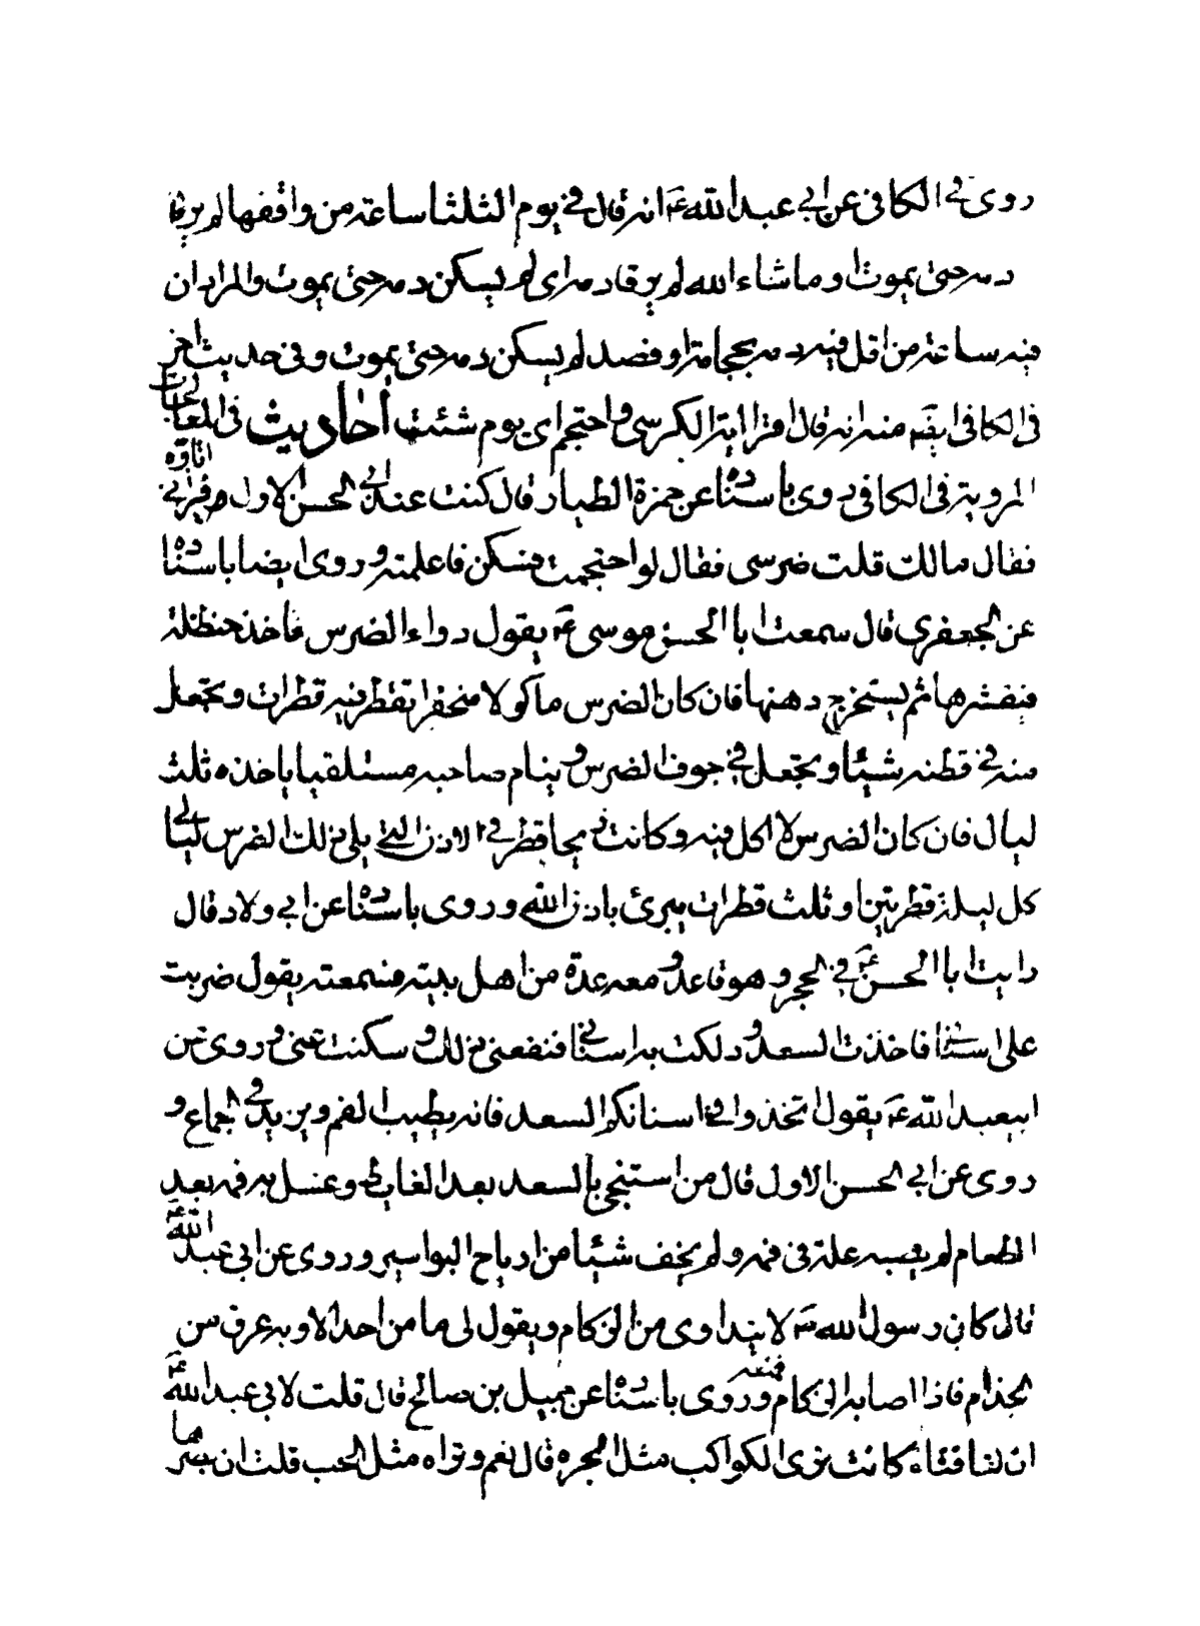 روى في الكافى عن ابي عبد الله عَ انه قال في يوم الثلثا ساعة من وافقها لم يرقا
دمه حتى يموت او ما شاء الله لم يرقا دمه اى لم يسكن دمه حتى يموت والمراد ان
فيه ساعة من اقل فيه دمه بحجامة او فصد لم يسكن دمه حتى يموت وفى حديث اخر
فى الكافى ايضَ منه انه قال اقرا اية الكرسى واحتجم اى يوم شئت أحاديث فى المعالجات
المروية فى الكافى روى باسناده عن حمزة الطيار قال كنت عند ابي الحسن الاول ع فرانى اتاوّه
فقال مالك قلت ضرسى فقال لو احتجمت فسكن فاعلمته وروى ايضا باسناده
عن الجعفرى قال سمعت ابا الحسن موسى عَ يقول دواء الضرس تاخذ حنظلة
فتقشرها ثم يستخرج دهنها فان كان الضرس ماكولا منحفرا تقطر فيه قطرات وتجعل
منه في قطنه شيئا وتجعل في جوف الضرس وينام صاحبه مستلقيا ياخذه ثلث
ليال فان كان الضرس لا اكل فيه وكانت ريحا قطر في الاذن التي يلى ذلك الضرس ليالى
كل ليلة قطرتين او ثلث قطرات يبرئ باذن الله وروى باسناده عن ابي ولاد قال
رايت ابا الحسن عَ في الحجر وهو قاعد ومعه عدة من اهل بيته فسمعته يقول ضربت
على اسنانى فاخذت السعد ودلكت به اسنانى فنفعنى ذلك وسكنت عنى وروى عن
ابيعبد الله عَ يقول اتخذوا في اسنانكم السعد فانه يطيب الفم ويزيد في الجماع و
روى عن ابي الحسن الاول قال من استنجى بالسعد بعد الغايط وغسل به فمه بعد
الطعام لم يصبه علة فى فمه ولم يخف شيئا من ارياح البواسير وروى عن ابى عبد الله عَ
قال كان رسول الله صَ لا يتداوى من الزكام ويقول لى ما من احد الا وبه عرق من
الجذام فاذا اصابه الزكام قمعه وروى باسناده عن جميل بن صالح قال قلت لابى عبد الله عَ
ان لنا فتاة كانت ترى الكواكب مثل الجره قال نعم وتراه مثل الحب قلت ان بصرها